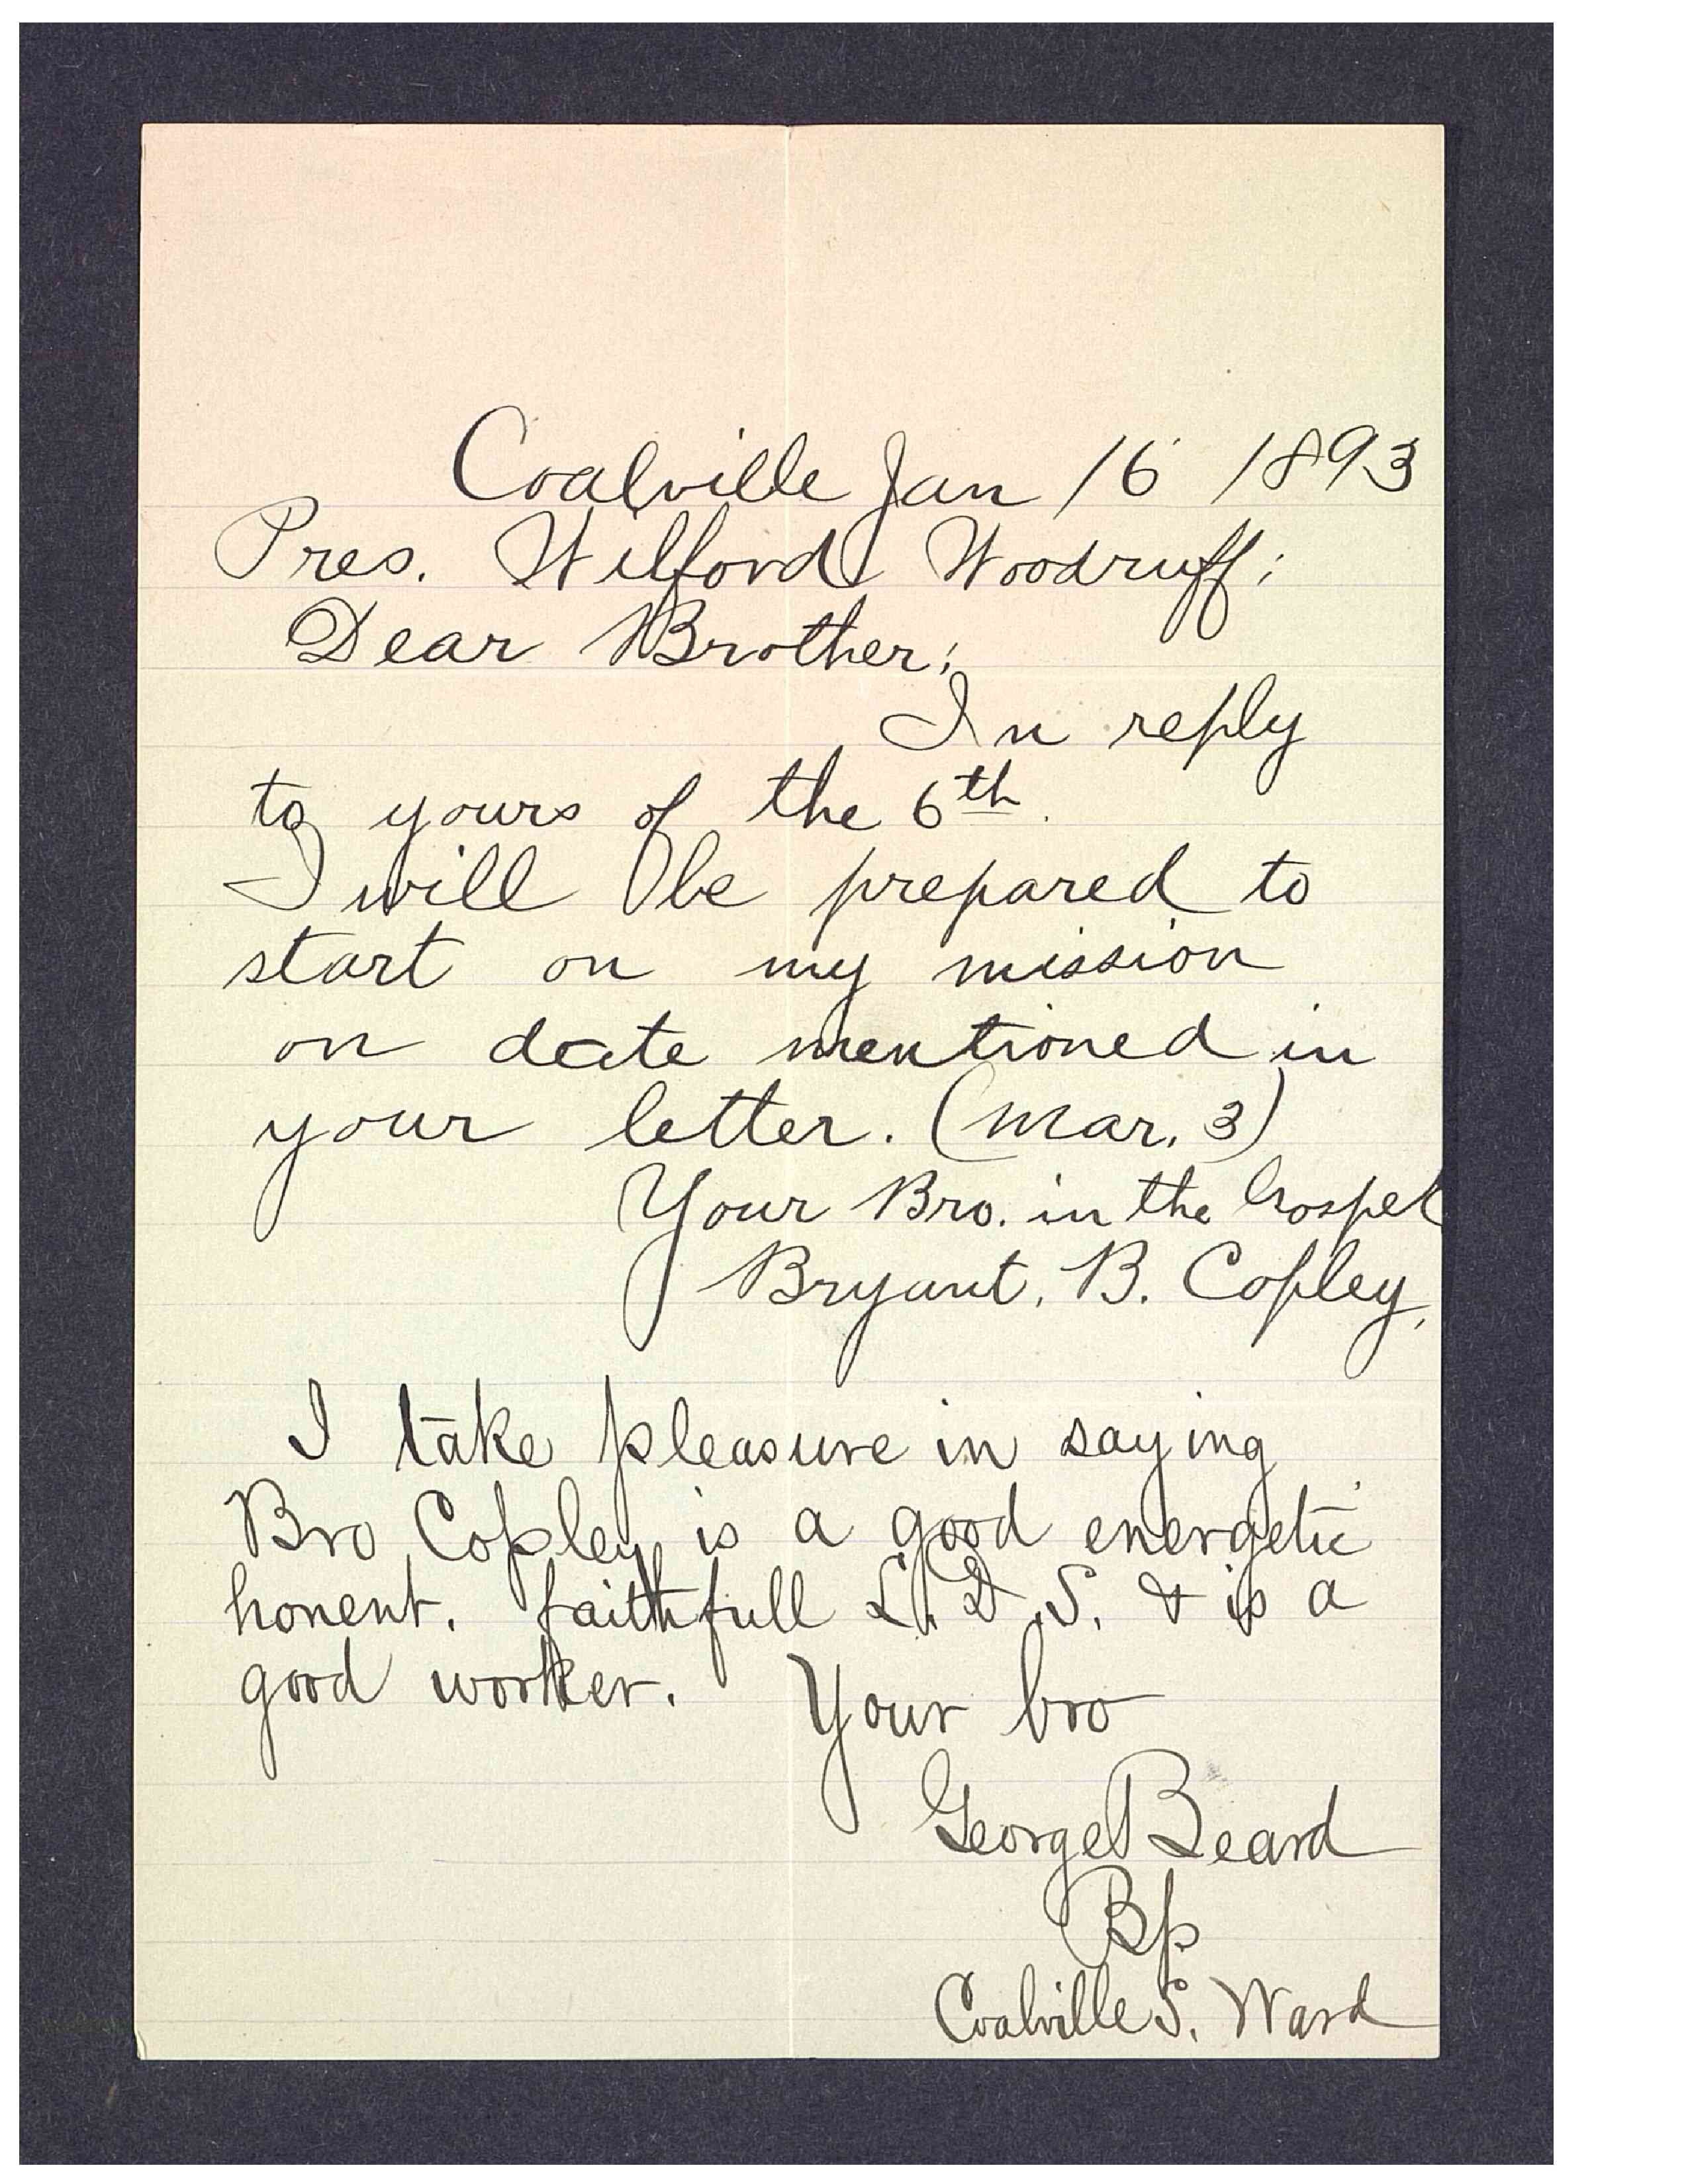 Coalville Jan 16 1893
Pres. Wilford Woodruff;
Dear Brother;
In reply
to yours of the 6th.
I will be prepared to
start on my mission
on date mentioned in
your letter. (Mar. 3)
Your Bro. in the Gospel
Bryant. B. Copley,
I take pleasure in saying
Bro Copley is a good energetic
honent. faithfull L.D.S. & is a
good worker. Your bro
George Beard
Bp
Coalville S. Ward